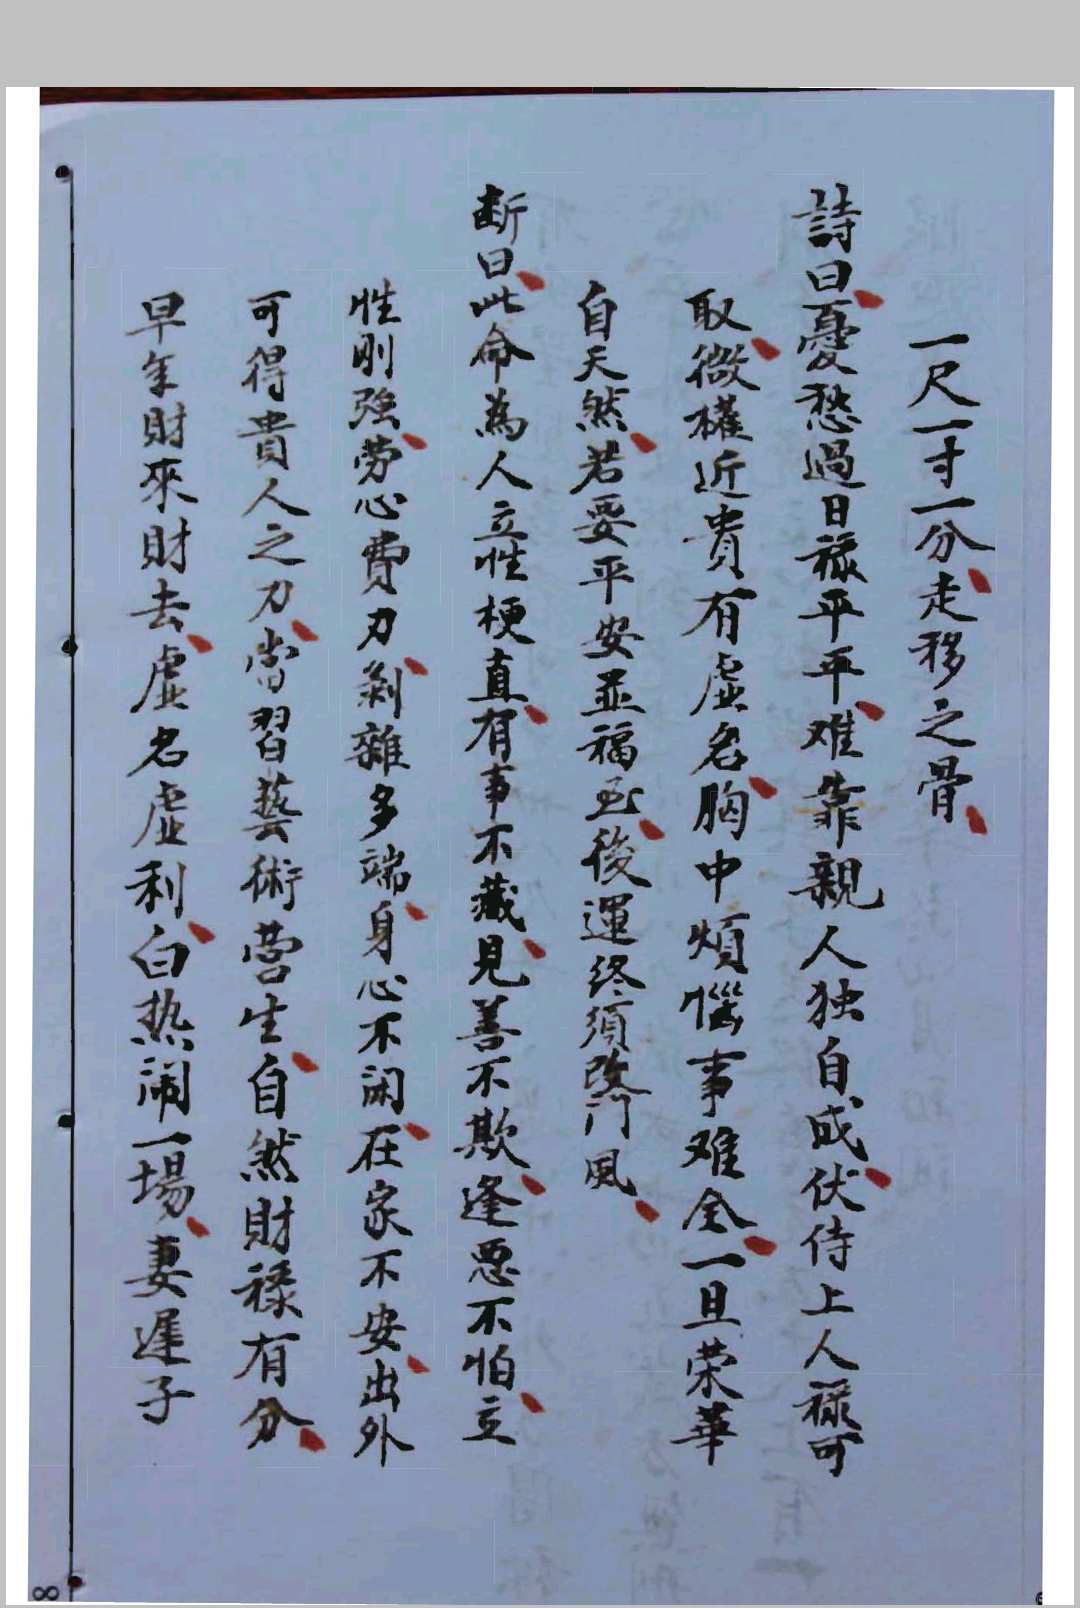 一尺一寸一分、走移之骨、
詩曰、憂愁過日祿平平、难靠親人独自成、伏侍上人祿可
取、微權近貴有虛名、胸中煩惱事难全、一旦荣華
自天然、若要平安並福至、後運终須改门風、
断曰、此命為人立性梗直、有事不藏、見善不欺、逢恶不怕、立
性刚強、劳心費力、剥雜多端、身心不闲、在家不安、出外
可得貴人之力、當習藝術营生、自然財祿有分、
早年財來財去、虛名虛利、白热闹一場、妻遲子
8